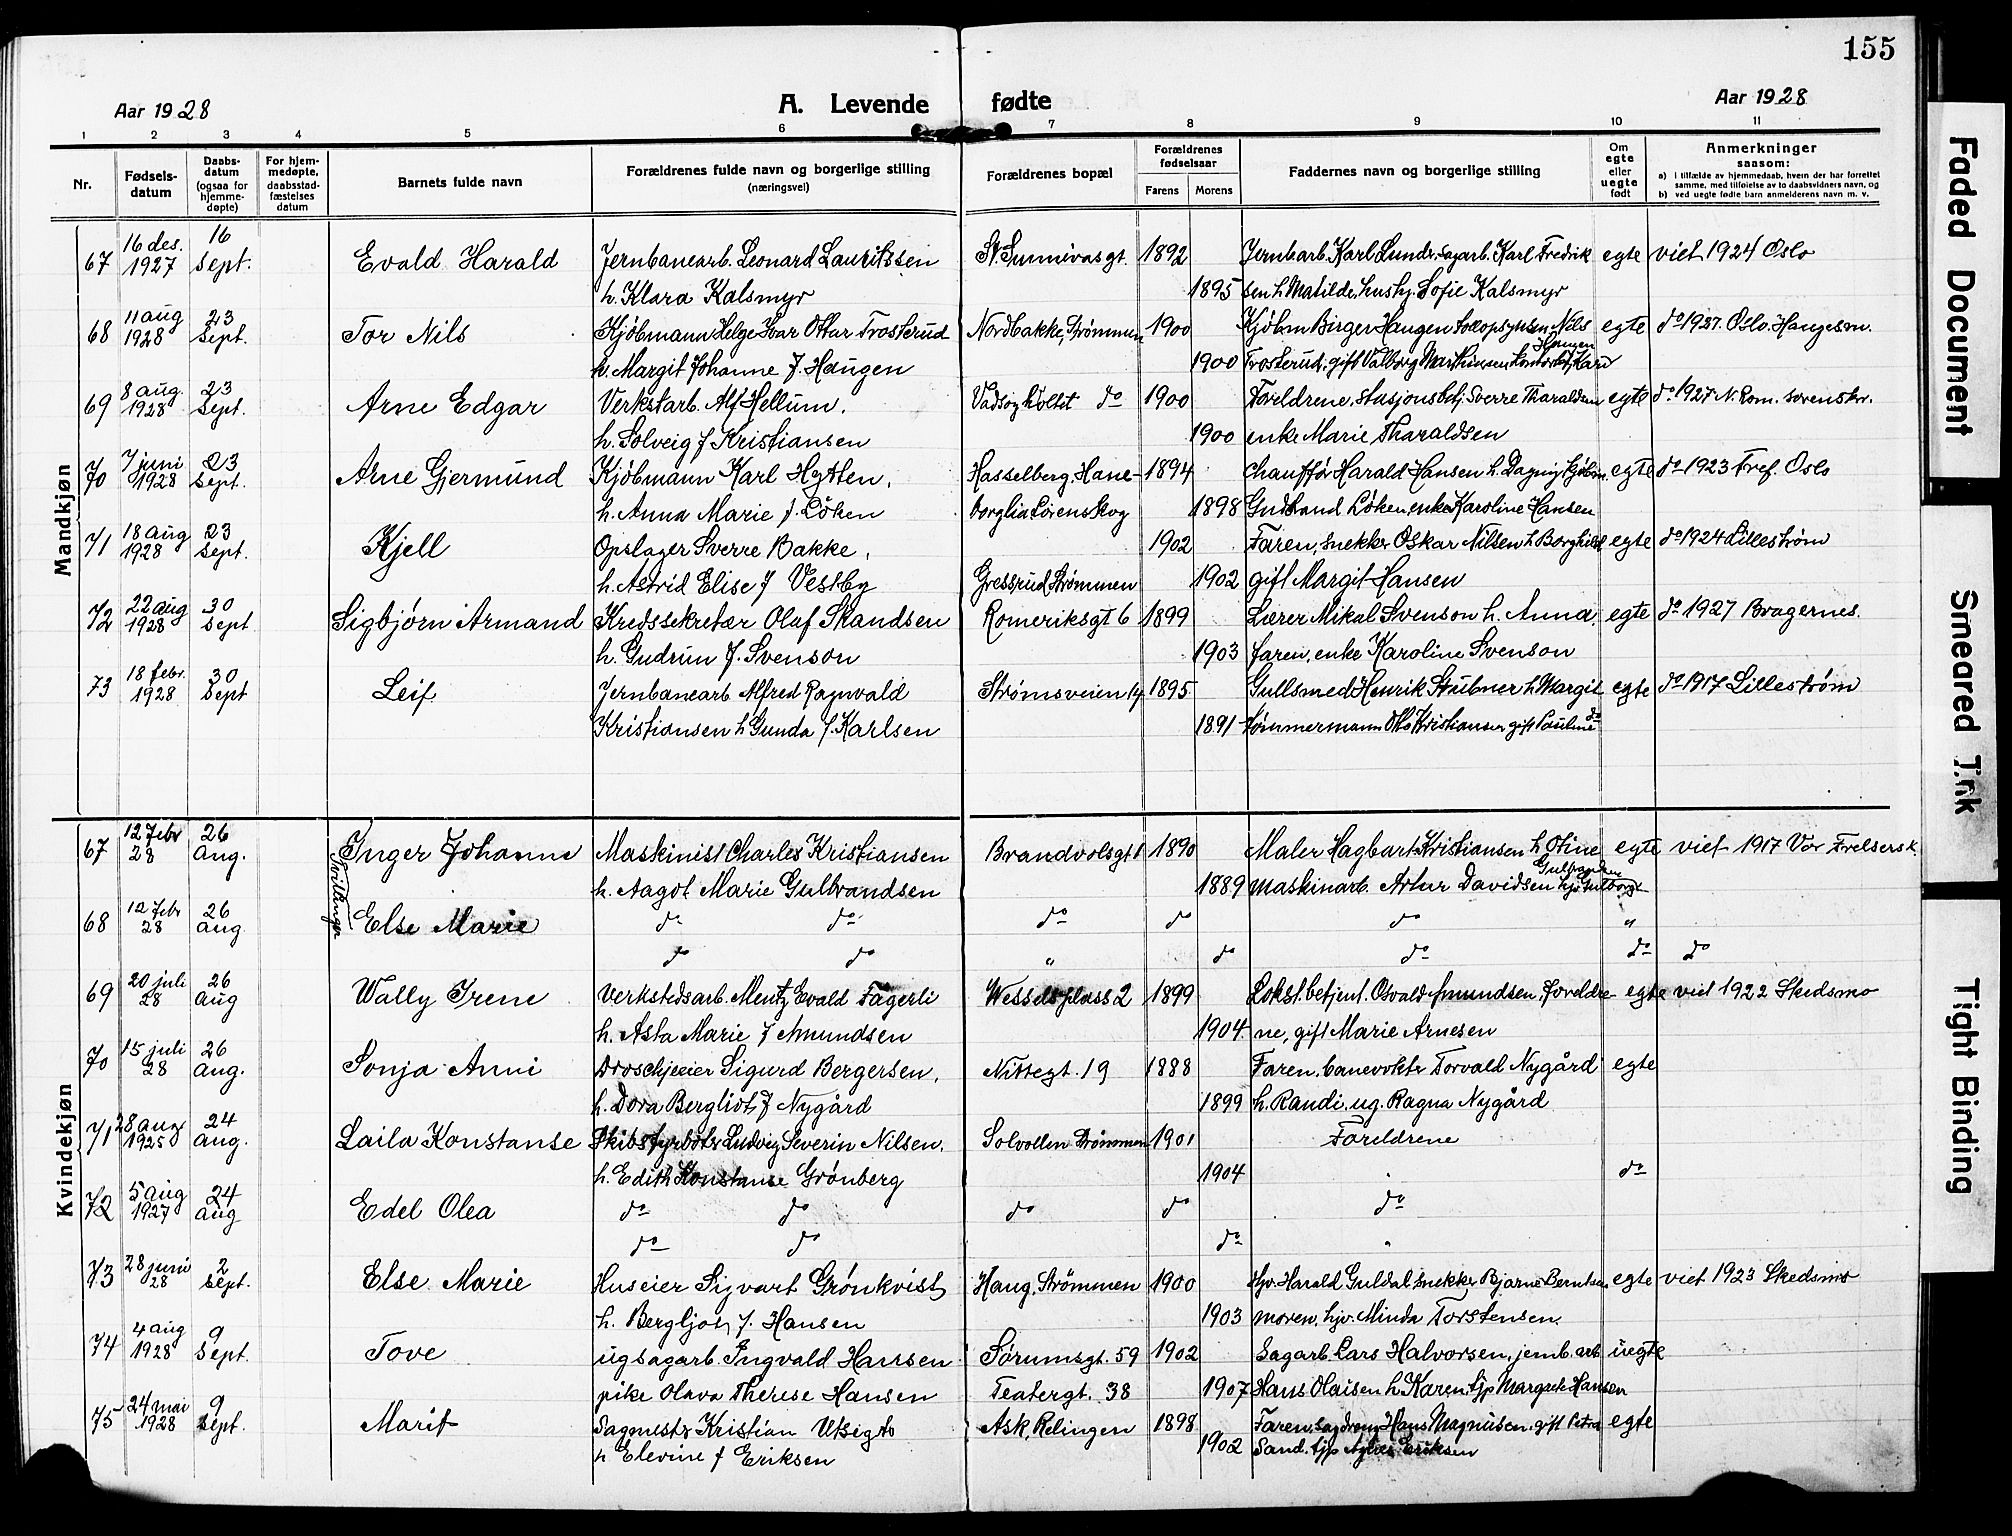 155
Aar 1928 A. Levende fødte Aar 1928
1 2 3 4 5 6 7 8 9 10 11
Nr. Fødsels-datum Daabs-datum (ogsaa for hjemme-døpte) For hjem-medøpte, daabsstad-fæstelses datum Barnets fulde navn Forældrenes fulde navn og borgerlige stilling (næringsvei) Forældrenes bopæl Forældrenes fødselsaar Farens Morens Faddernes navn og borgerlige stilling Om egte eller uegte født Anmerkninger saasom:
a) i tilfælde av hjemmedaab, hvem der har forrettet samme, med tilføielse av to daabsvidners navn, og
b) ved uegte fødte barn anmelderens navn m. v.
Mandkjøn
67 16 des. 1927 16 Sept. Evald Harald Jernbanearb. Leonard Lauritssen St. Sunnivasgt. 1892 Jernbarb. Karl Lunde, sagarb. Karl Fredrik egte viet 1924 Oslo
h. Klara Kalsmyr 1895 sen h. Matilde, hushj. Sofie Kalsmyr
68 11 aug 1928 23 Sept. Tor Nils Kjøbmann Helge Ivar Ottar Trosterud Nordbakke, Strømmen 1900 Kjøbm Birger Haugen Nils egte do 1927. Oslo. Haugesm.
h. Margit Johanne f. Haugen 1900 Trosterud, gift Valborg Haugen Kari
69 8 aug. 1928 23 Sept. Arne Edgar Verkstarb. Alf Hellum. do 1900 Foreldrene, stasjonsbetj. Sverre Tharaldsen egte do 1927 N. Rom. sorenskr.
h. Solveig f Kristiansen 1900 enke Marie Tharaldsen
70 7 juni 1928 23 Sept. Arne Gjermund Kjøbmann Karl Hytten, Hasselberg, Hane- 1894 Chauffør Harald Hansen h. Dagny, kjøbm. egte do 1923 Tref. Oslo
h. Anna Marie f. Löken borglia Lørenskog 1898 Gudbrand Løken, enke Karoline Hansen
71 18 aug 1928 23 Sept. Kjell Opslager Sverre Bakke, 1902 Faren, snekker Oskar Nilsen h Borghild egte do 1924 Lillestrøm
h. Astrid Elise f Vestby Gressrud Strømmen 1902 gift Margit Hansen
72 22 aug 1928 30 Sept Sigbjørn Armand Kredssekretær Olaf Skandsen Romeriksgt 6 1899 Lærer Mikal Svenson h. Anna, egte do 1927 Bragernes.
h. Gudrun f. Svenson 1903 faren, enke Karoline Svenson
73 18 febr. 1928 30 Sept Leif Jernbanearb Alfred Ragnvald Strømsveien 14 1895 Gullsmed Henrik Stubner h Margit egte do 1917 Lillestrøm
Kristiansen h Gunda f. Karlsen 1891 tømmermann Otto Kristiansen gift Pauline do
Kvindekjøn
67 12 febr 28 26 Aug. Inger Johanne Maskinist Charles Kristiansen Brandvolsgt 1 1890 Maler Hagbart Kristiansen h Otine egte viet 1917 Vor Frelsers k.
Tvillinger
h. Aagot Marie Gulbrandsen 1889 maskinarb. Artur Davidsen hj. Gulborg Gulbrandsen
68 12 febr 28 26 Aug Else Marie do do do do do "
do do " do do do do
69 20 juli 28 26 Aug Wally Irene Verkstedsarb. Mentz Evald Fagerli Wesselsplass 2 1899 Lokst.betjent. Osvald Amundsen, foreldre- egte viet 1922 Skedsmo
h. Asta Marie f Amundsen 1904 ne, gift Marie Arnesen
70 15 juli 28 26 Aug. Sonja Anni Droschjeeier Sigurd Bergersen, Nittegt. 19 1888 Faren, banevokter Torvald Nygård egte
h. Dora Bergliot f Nygård 1899 h. Randi, ug. Ragna Nygård
71 28 aug 1925 24 Aug. Laila Konstanse Skibsfyrbøter Ludvig Severin Nilsen, Solvollen Strømmen 1901 Foreldrene
h. Edith Konstanse Grønberg 1904 " do
72 5 aug 1927 24 Aug Edel Olea do do do do do
do do do "
73 28 juni 28 2 Sept. Else Marie Huseier Sigvart Grønkvist Haug, Strømmen 1900 Hjv. Harald Guldal, snekker Bjarne Berntsen egte viet 1923 Skedsmo
h. Bergljot f. Hansen 1903 moren, hjv. Minda Torstensen.
74 4 aug 1928 9 Sept. Tove ug sagarb. Ingvald Hansen Sørumsgt. 59 1902 Sagarb. Lars Halvorsen, jernb. arb uegte
pike Olava Therese Hansen Teatergt. 38 1907 Hans Olaisen h Karen, tjp Margrete Hansen
75 24 mai 1928 9 Sept. Marit Sagmester Kristian Utsigt Ask, Relingen 1898 Faren, sagdreng Hans Magnussen, gift Petra egte
h Elevine f Eriksen 1902 Sand. tjp Agnes Eriksen
Faded Document
Smeared Ink
Tight Binding